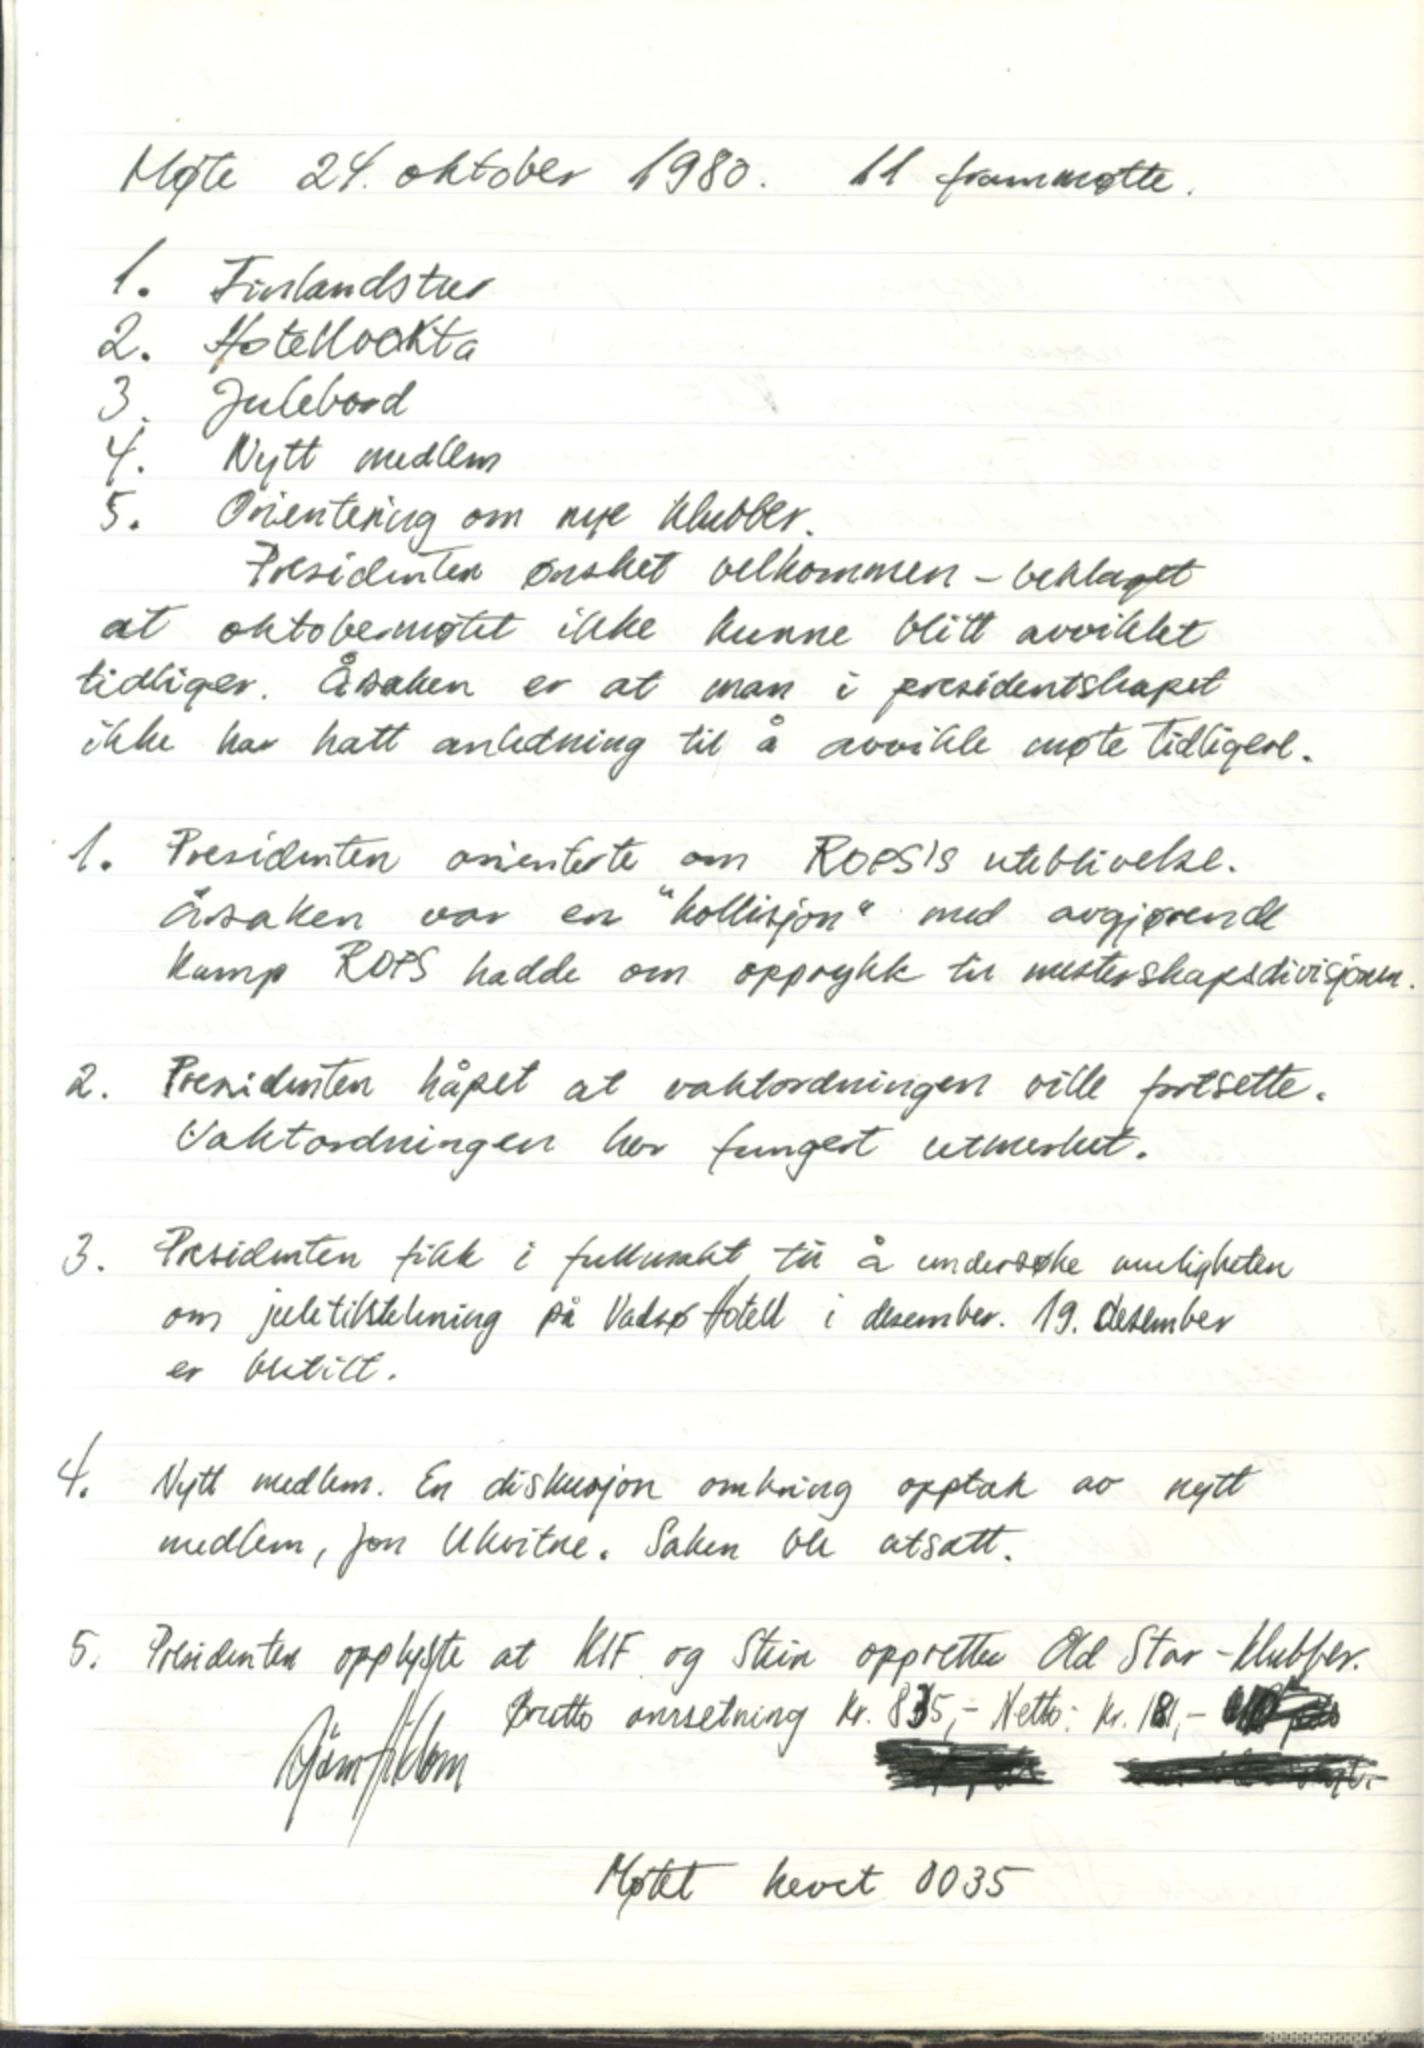 Møte 24. oktober 1980. 11 frammøtte.
1. Finlandstur
2. Hotellvakta
3. Julebord
4. Nytt medlem
5. Orientering om nye klubber.
Presidenten ønsket velkommen - beklaget
at oktobermøtet ikke kunne blitt avviklet
tidliger. Årsaken er at man i presidentskapet
ikke har hatt anledning til å avvikle møte tidligere.
1. Presidenten orienterte om ROPS's uteblivelse.
Årsaken var en "kollisjon" med avgjørende
kamp ROPS hadde om opprykk til mesterskapsdivisjonen.
2. Presidenten håpet at vaktordningen ville fortsette.
Vaktordningen har fungert utmerket.
3. Presidenten fikk i fullmakt til å undersøke muligheten
om juletilstelning på Vadsø Hotell i desember. 19. desember
er bestilt.
4. Nytt medlem. En diskusjon omkring opptak av nytt
medlem, Jon Ukvitne. Saken ble utsatt.
5. Presidenten opplyste at KIF og Stein oppretter Old Star-klubber.
Brutto omsetning Kr. 835,- Netto: Kr. 181,-
Møtet hevet 0035